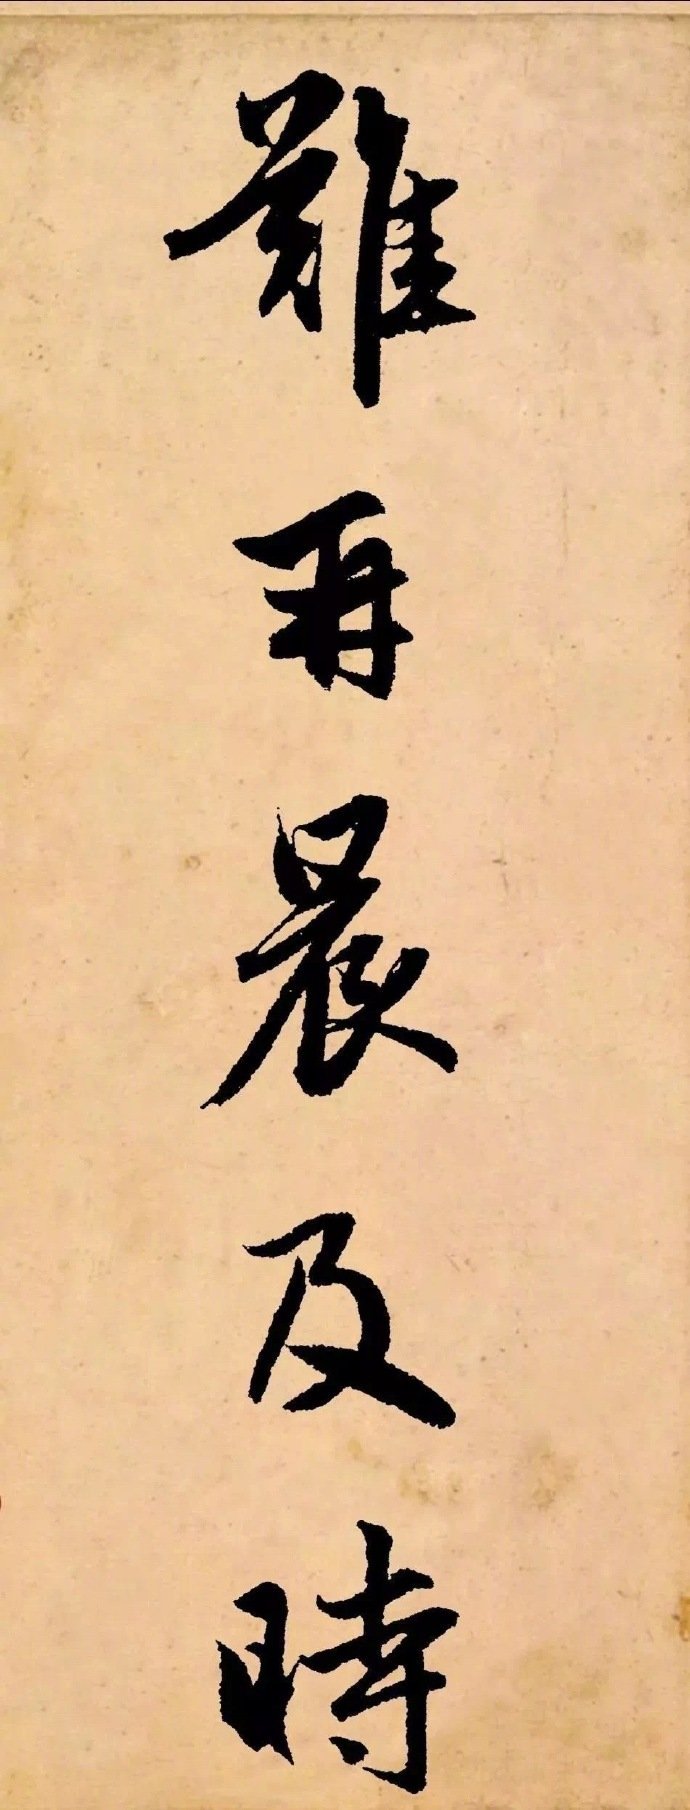 難再晨及時